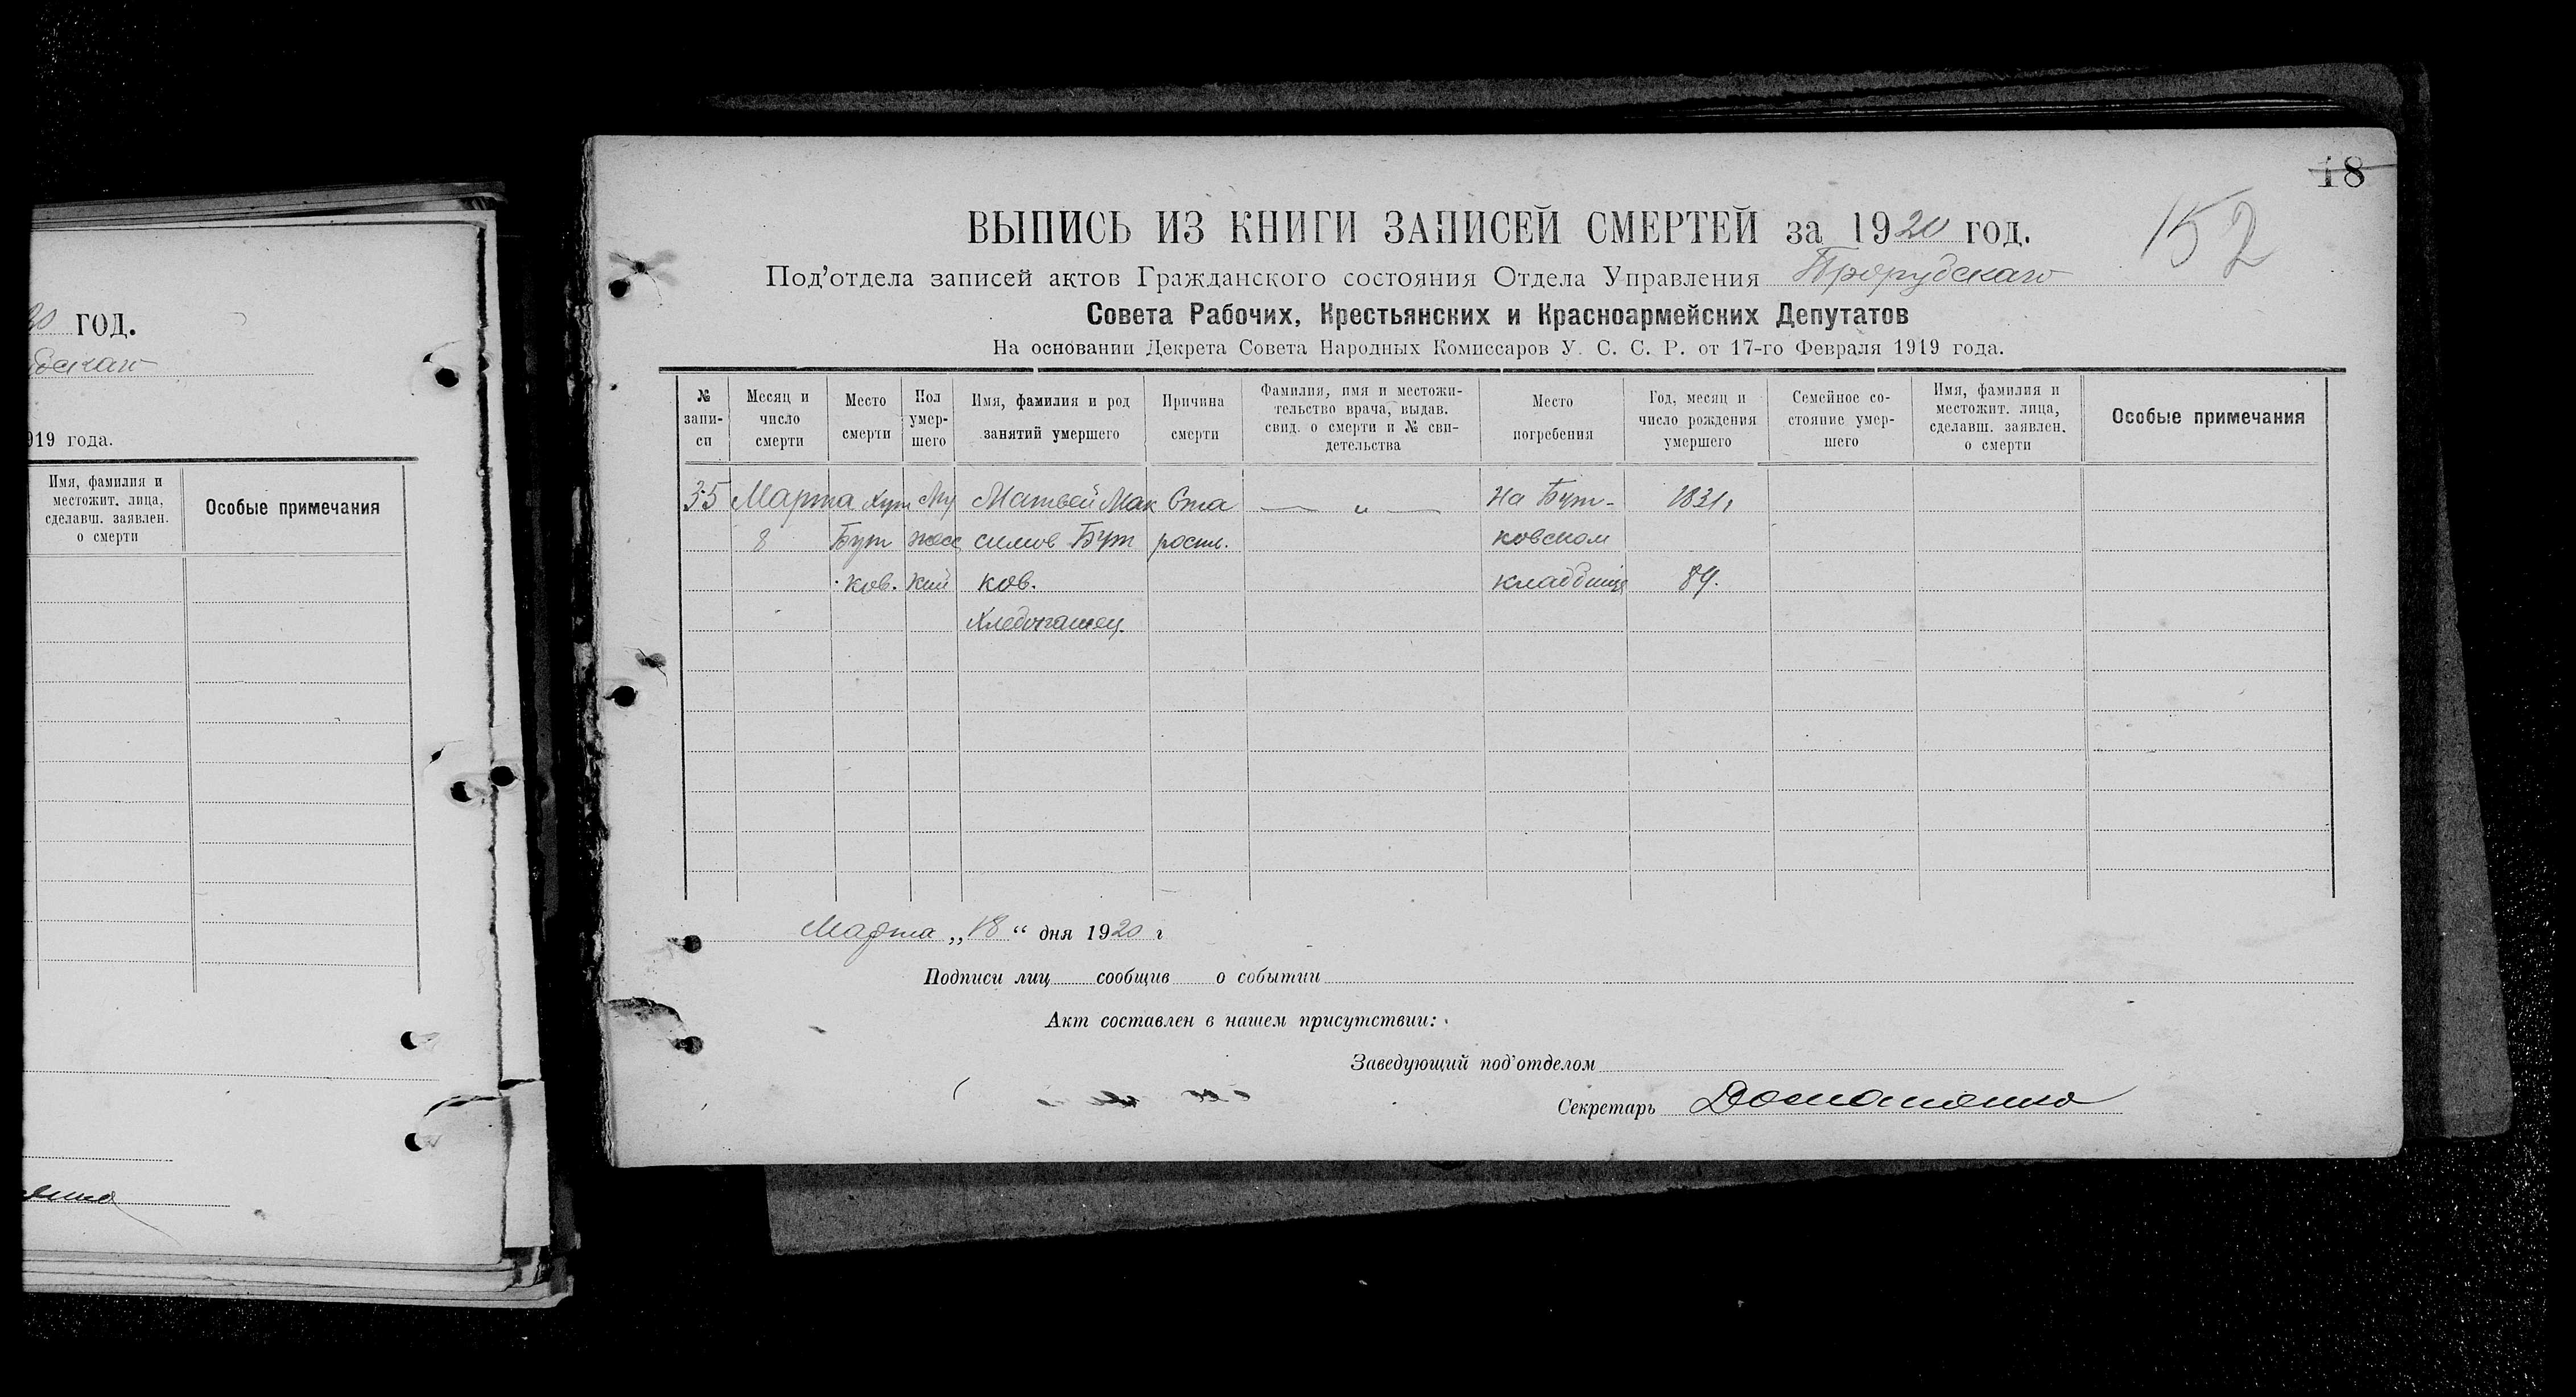 20 год.
бскаго
919 года.
Имя, фамилия и
местожит. лица,
сделавш. заявлен.
о смерти
Особые примечания
18
152
ВЫПИСЬ ИЗ КНИГИ ЗАПИСЕЙ СМЕРТЕЙ за 1920 год.
Под'отдела записей актов Гражданского состояния Отдела Управления Прорубскаго
Совета Рабочих, Крестьянских и Красноармейских Депутатов
На основании Декрета Совета Народных Комиссаров У. С. С. Р. от 17-го Февраля 1919 года.
№ запи-си
Месяц и число смерти
Место смерти
Пол умер-шего
Имя, фамилия и род занятий умершего
Причина смерти
Фамилия, имя и местожи-тельство врача, выдав. свид. о смерти и № сви-детельства
Место погребения
Год, месяц и число рождения умершего
Семейное со-стояние умер-шего
Имя, фамилия и местожит. лица, сделавш. заявлен. о смерти
Особые примечания
35 Марта Хут Му Матвей Мак Ста — " — На Бут- 1831,
8 Бут жес симов Бут рости. ковском
ков. кий ков. кладбище 89.
Хлебопашец.
Марта „18“ дня 1920 г
Подписи лиц сообщив о событии
Акт составлен в нашем присутствии:
Заведующий под'отделом
Секретарь Домашенко